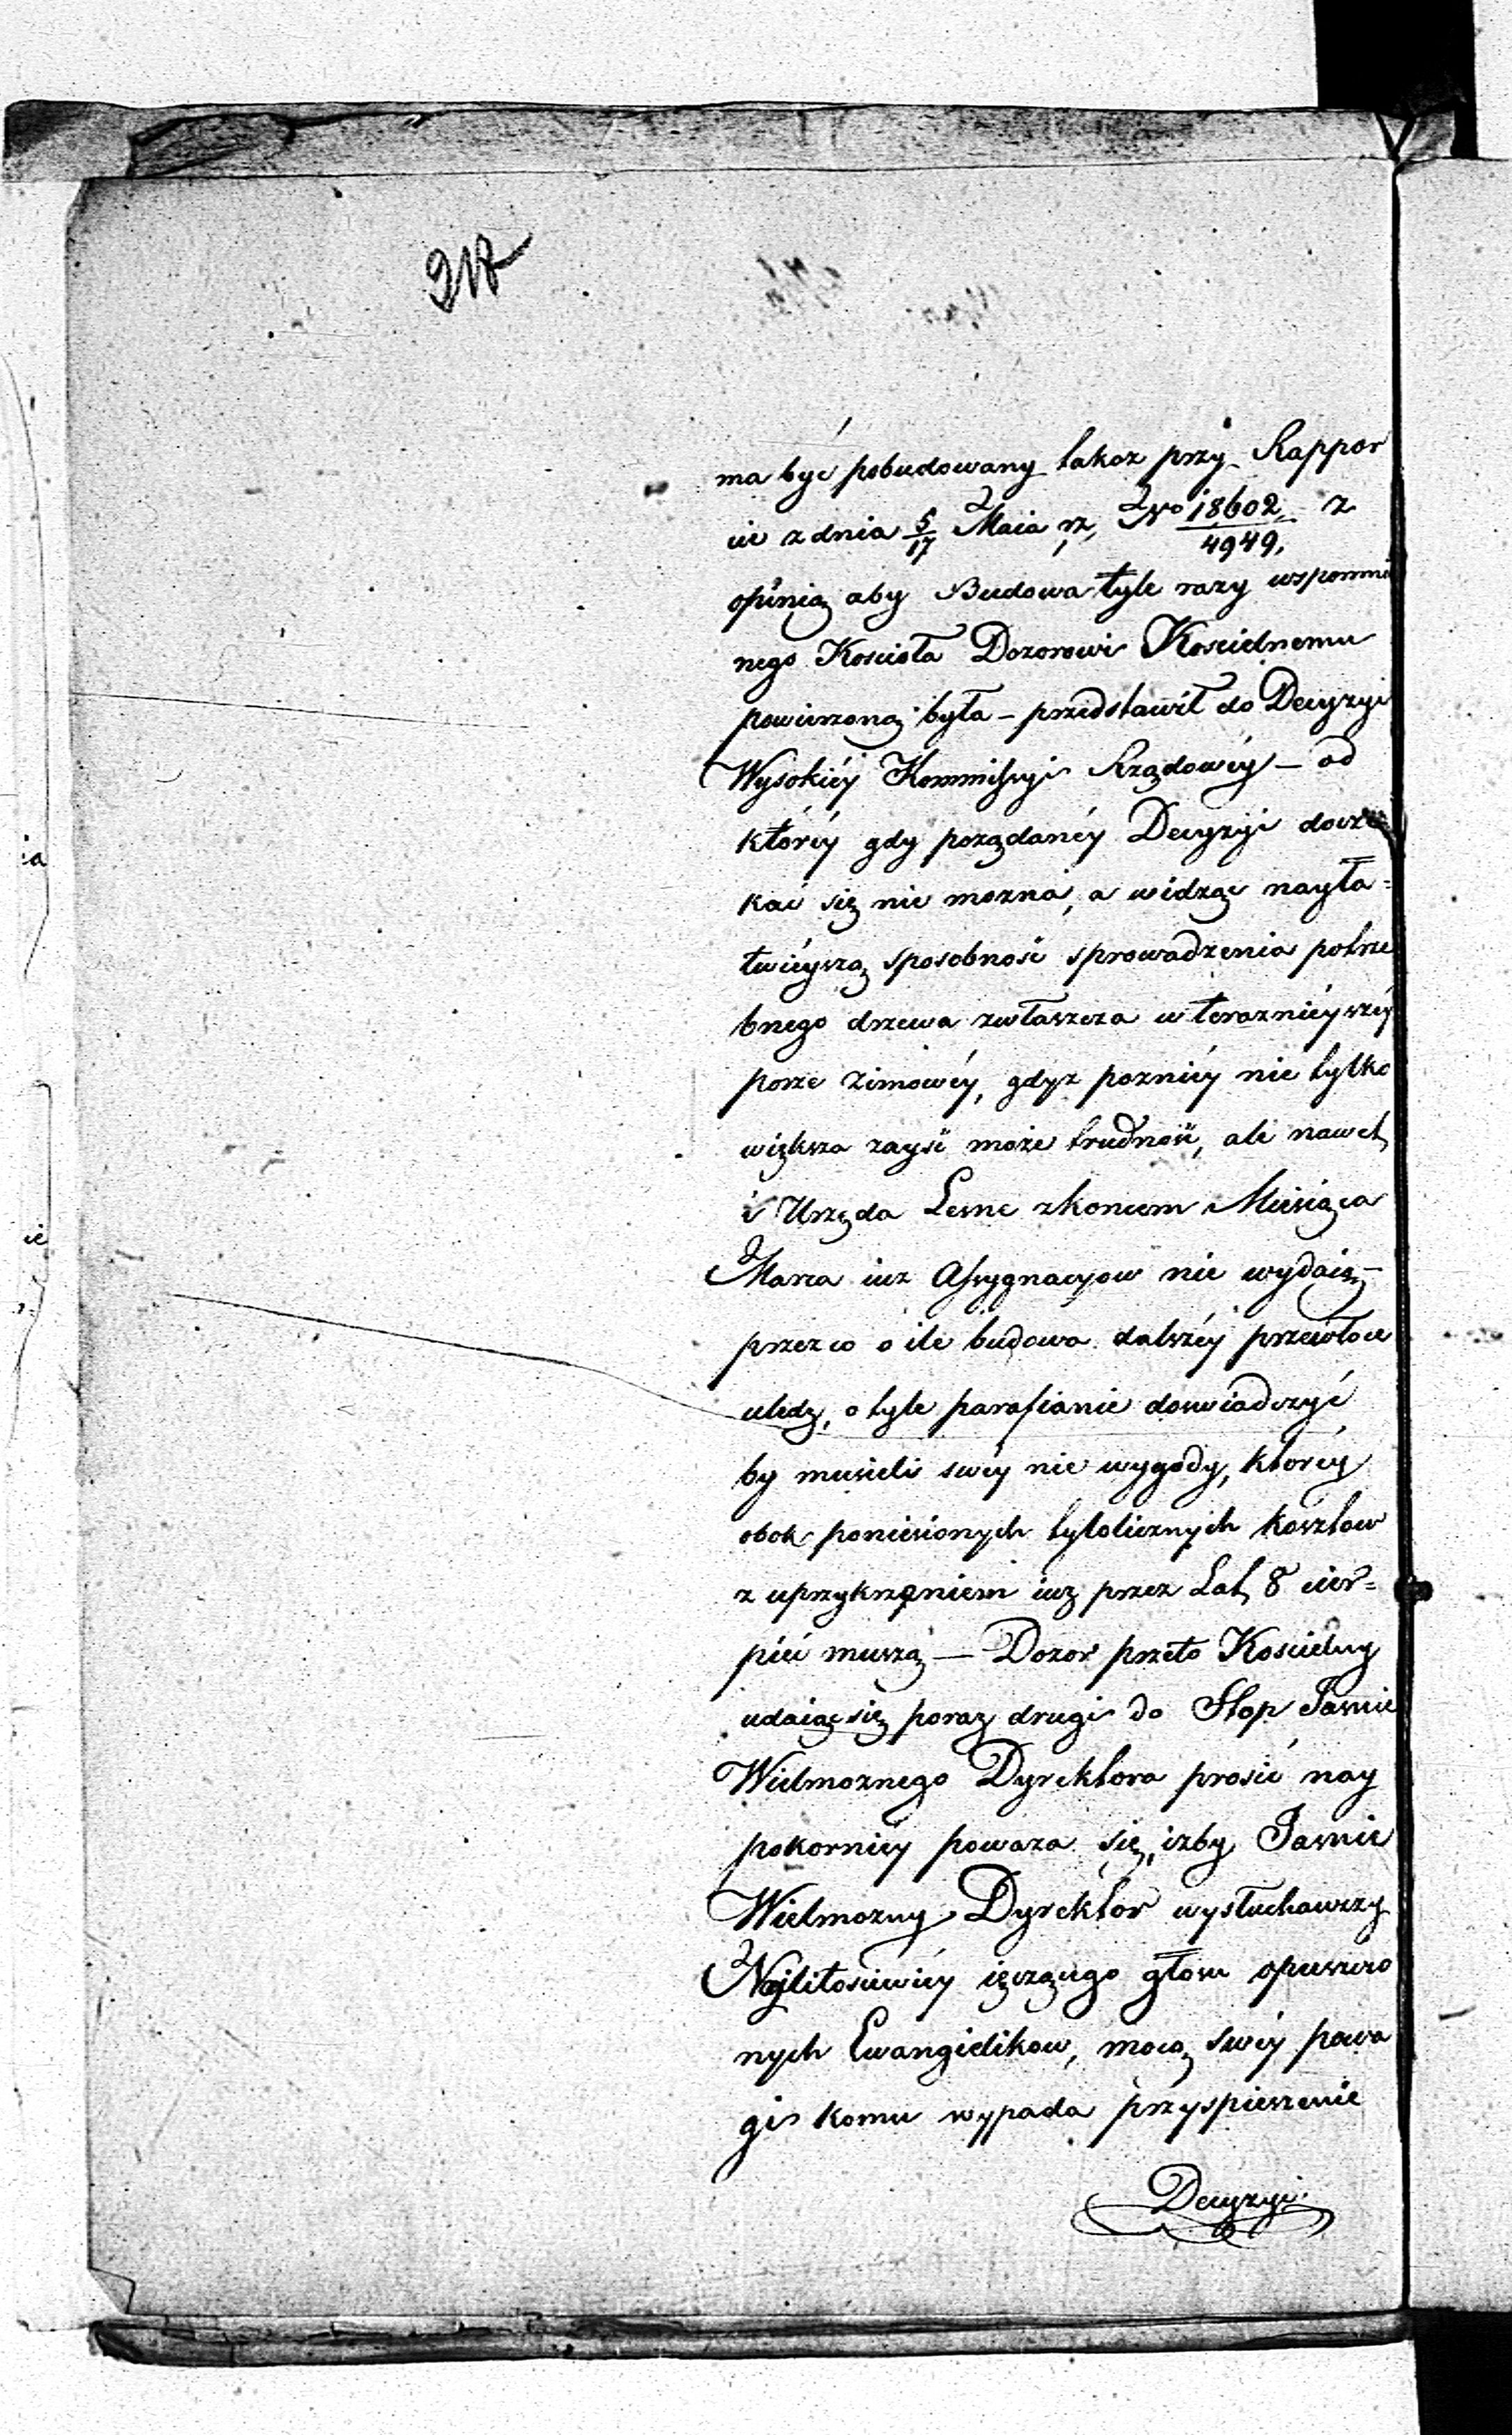 217
ma być pobudowany takoz przy Rappor
cie z dnia 5/17 Maia rz, No 18602/4949, z
opinią aby Budowa tyle razy wspomnio
nego Koscioła Dozorowi Koscielnemu
powierzoną była – przedstawił do Decyzyi
Wysokiéy Kommissyi Rządowéy – od
któréy gdy poządanéy Decyzyi docze
kać się nie mozna, a widząc nayła=
twiéyszą sposobnosć sprowadzenia potrze
bnego drzewa zwłaszcza w teraznieyszéy
porze zimowéy, gdyz pozniéy nie tylko
większa zayść może trudność, ale nawet
i Urzęda Lesne z koncem Miesiąca
Marca iuz Assygnacyow nie wydaią –
przez co o ile budowa dalszéy przewłoce
uledz, o tyle parafianie doswiadczyć
by musieli swéy nie wygody, któréy
obok poniesionych tylolicznych kosztow
z uprzykrzeniem iuz przez Lat 8 cier=
pieć muszą — Dozor przeto Koscielny
udaiąc się poraz drugi do Stop Jasnie
Wielmoznego Dyrektora prosić nay
pokorniéy powaza się, izby Jasnie
Wielmozny Dyrektor wysłuchawszy
Najlitosciwiéy ięczącego głosu opuszczo
nych Ewangielikow, mocą swéy powa
gi komu wypada przyspieszenie
Decyzyi